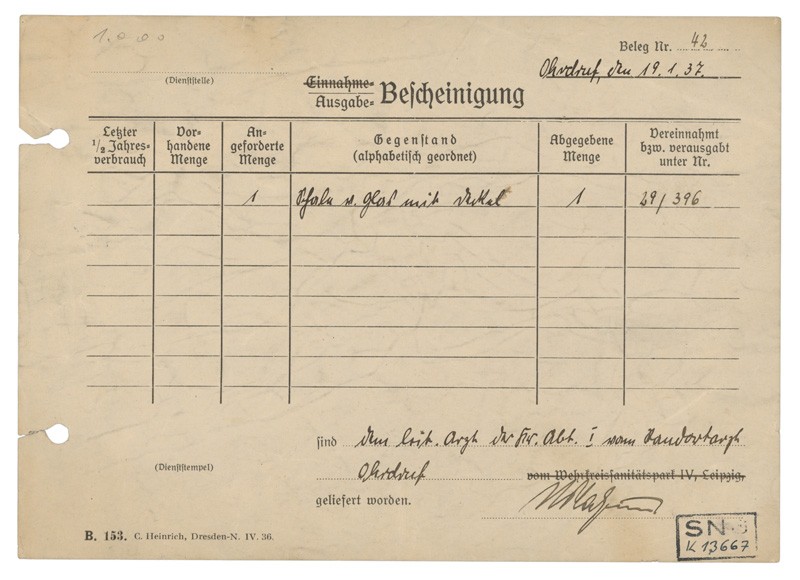 Beleg Nr. 42
Ohrdruf, den 19.1.37.
(Dienststelle)
Einnahme-
Ausgabe- Bescheinigung
Letzter ½ Jahres-verbrauch
Vor-handene Menge
An-geforderte Menge
Gegenstand (alphabetisch geordnet)
Abgegebene Menge
Vereinnahmt bzw. verausgabt unter Nr.
1 Schale v. Glas mit Deckel 1 29/396
sind dem leit. Arzt der Kr. Abt. I vom Standortarzt
Ohrdruf vom Wehrkreissanitätspark IV, Leipzig,
(Dienststempel)
geliefert worden.
B. 153. C. Heinrich, Dresden-N. IV. 36.
SN-
K 13667